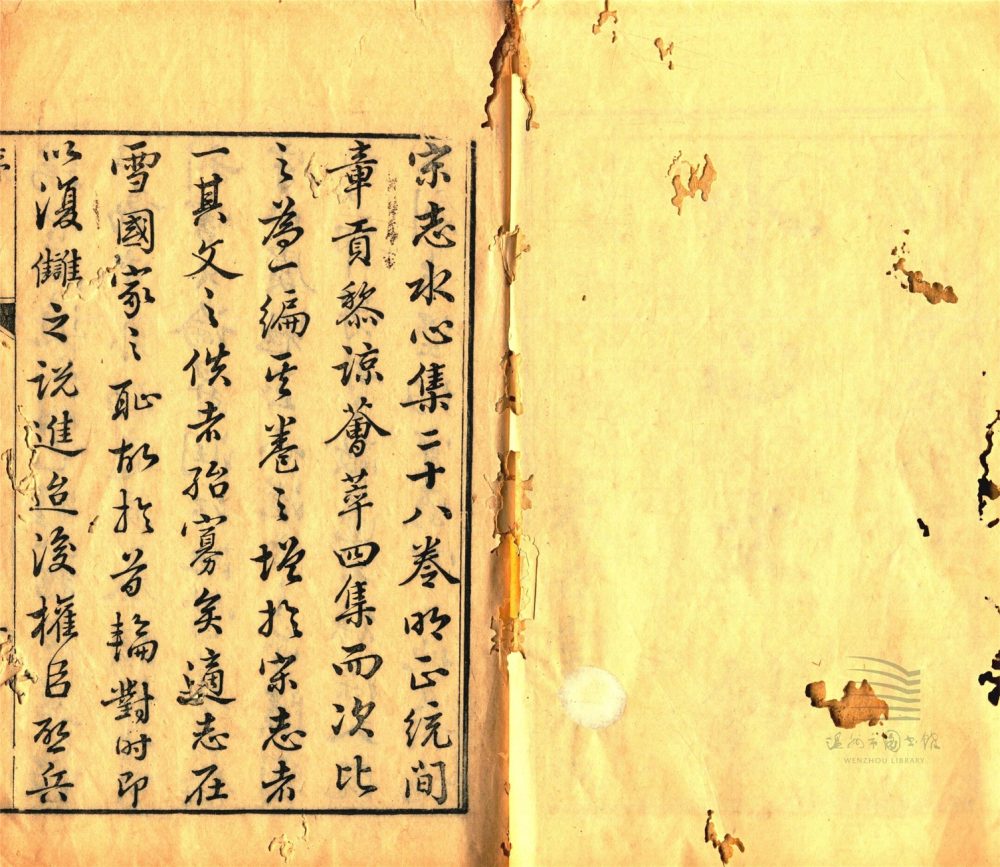 宋志水心集二十八卷明正統間
章貢黎諒薈萃四集而次比
之為一編其卷之增於宋志者
一其文之佚者殆寡矣適志在
雪國家之恥故於首輪對時即
以復讎之說進迨後權臣啟兵
温州市图书馆
WENZHOU LIBRARY